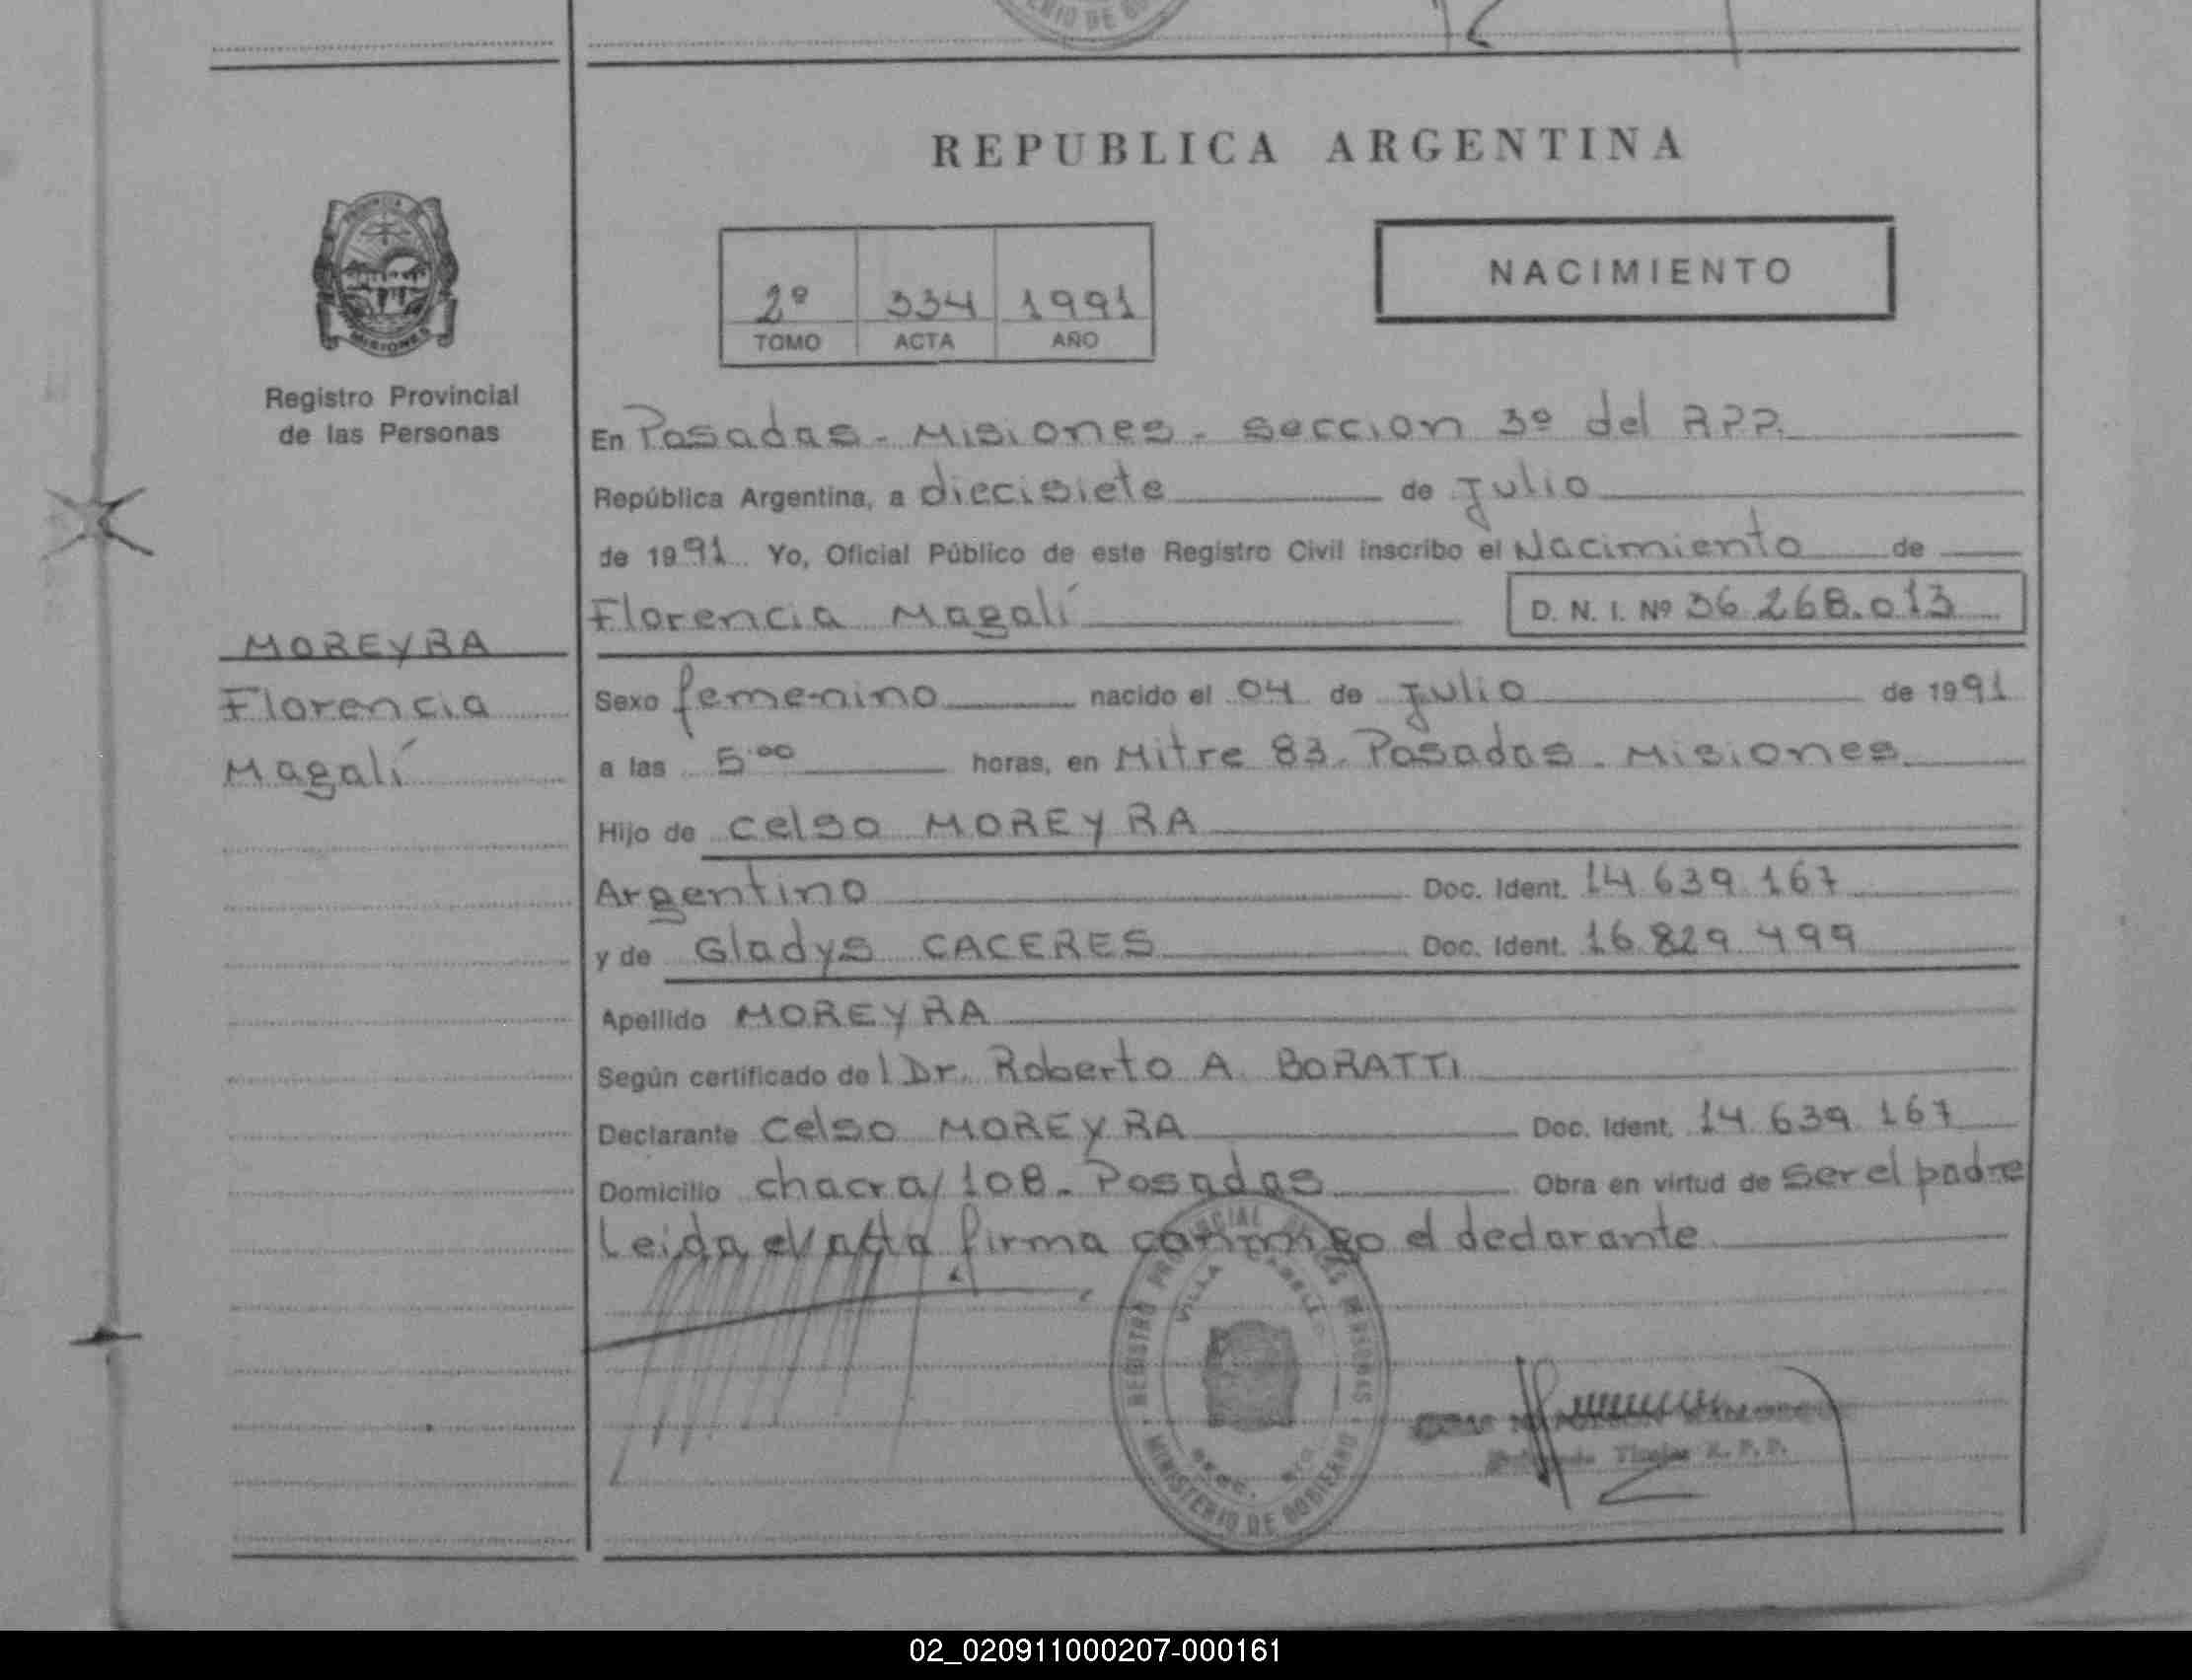 REPUBLICA ARGENTINA
NACIMIENTO
2º 334 1991
TOMO ACTA AÑO
MISIONES
Registro Provincial
de las Personas
En Posadas - Misiones - seccion 3º del RPP.
República Argentina, a diecisiete de Julio
de 1991 Yo, Oficial Público de este Registro Civil inscribo el Nacimiento de
Florencia Magalí D. N. I. Nº 36.268.013
MOREYRA
Florencia
Magalí
Sexo femenino nacido el 04 de Julio de 1991
a las 5:00 horas, en Mitre 83. Posadas - Misiones.
Hijo de Celso MOREYRA
Argentino Doc. Ident. 14.639.167
y de Gladys CACERES Doc. Ident. 16.829.499
Apellido MOREYRA
Según certificado del Dr. Roberto A. BORATTI
Declarante Celso MOREYRA Doc. Ident. 14.639.167
Domicilio chacra 108 - Posadas Obra en virtud de ser el padre
Leida el acta firma conmigo el declarante
REGISTRO PROVINCIAL DE LAS PERSONAS
VILLA CABELLO
MINISTERIO DE GOBIERNO
Titular R. P. P.
02_020911000207-000161